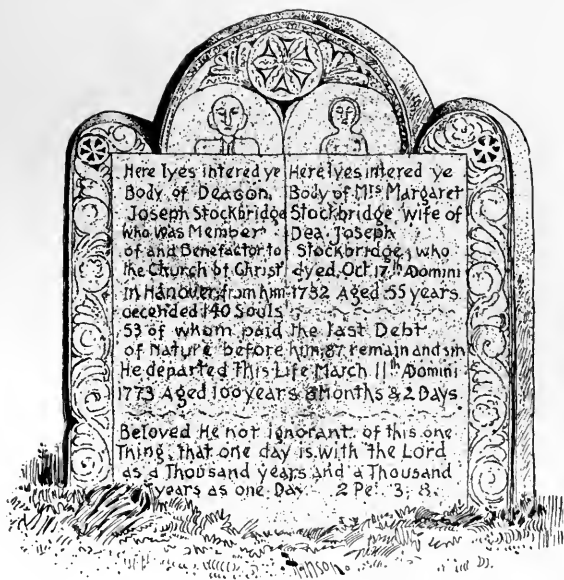 Here lyes intered ye
Body of Deacon,
Joseph Stockbridge
who was Member
of and Benefactor to
the Church of Christ
in Hanover, from him
decended 140 Souls
Here lyes intered ye
Body of Mrs Margaret
Stockbridge, wife of
Dea. Joseph
Stockbridge, who
dyed Oct 17th Domini
1732 Aged 55 years
53 of whom paid the last Debt
of Nature before him, 87 remain and sin
He departed This Life March 11th Domini
1773 Aged 100 years 8 Months & 2 Days.
Beloved He not Ignorant of this one
Thing, that one day is with the Lord
as a Thousand years and a Thousand
years as one Day. 2 Pe. 3, 8.